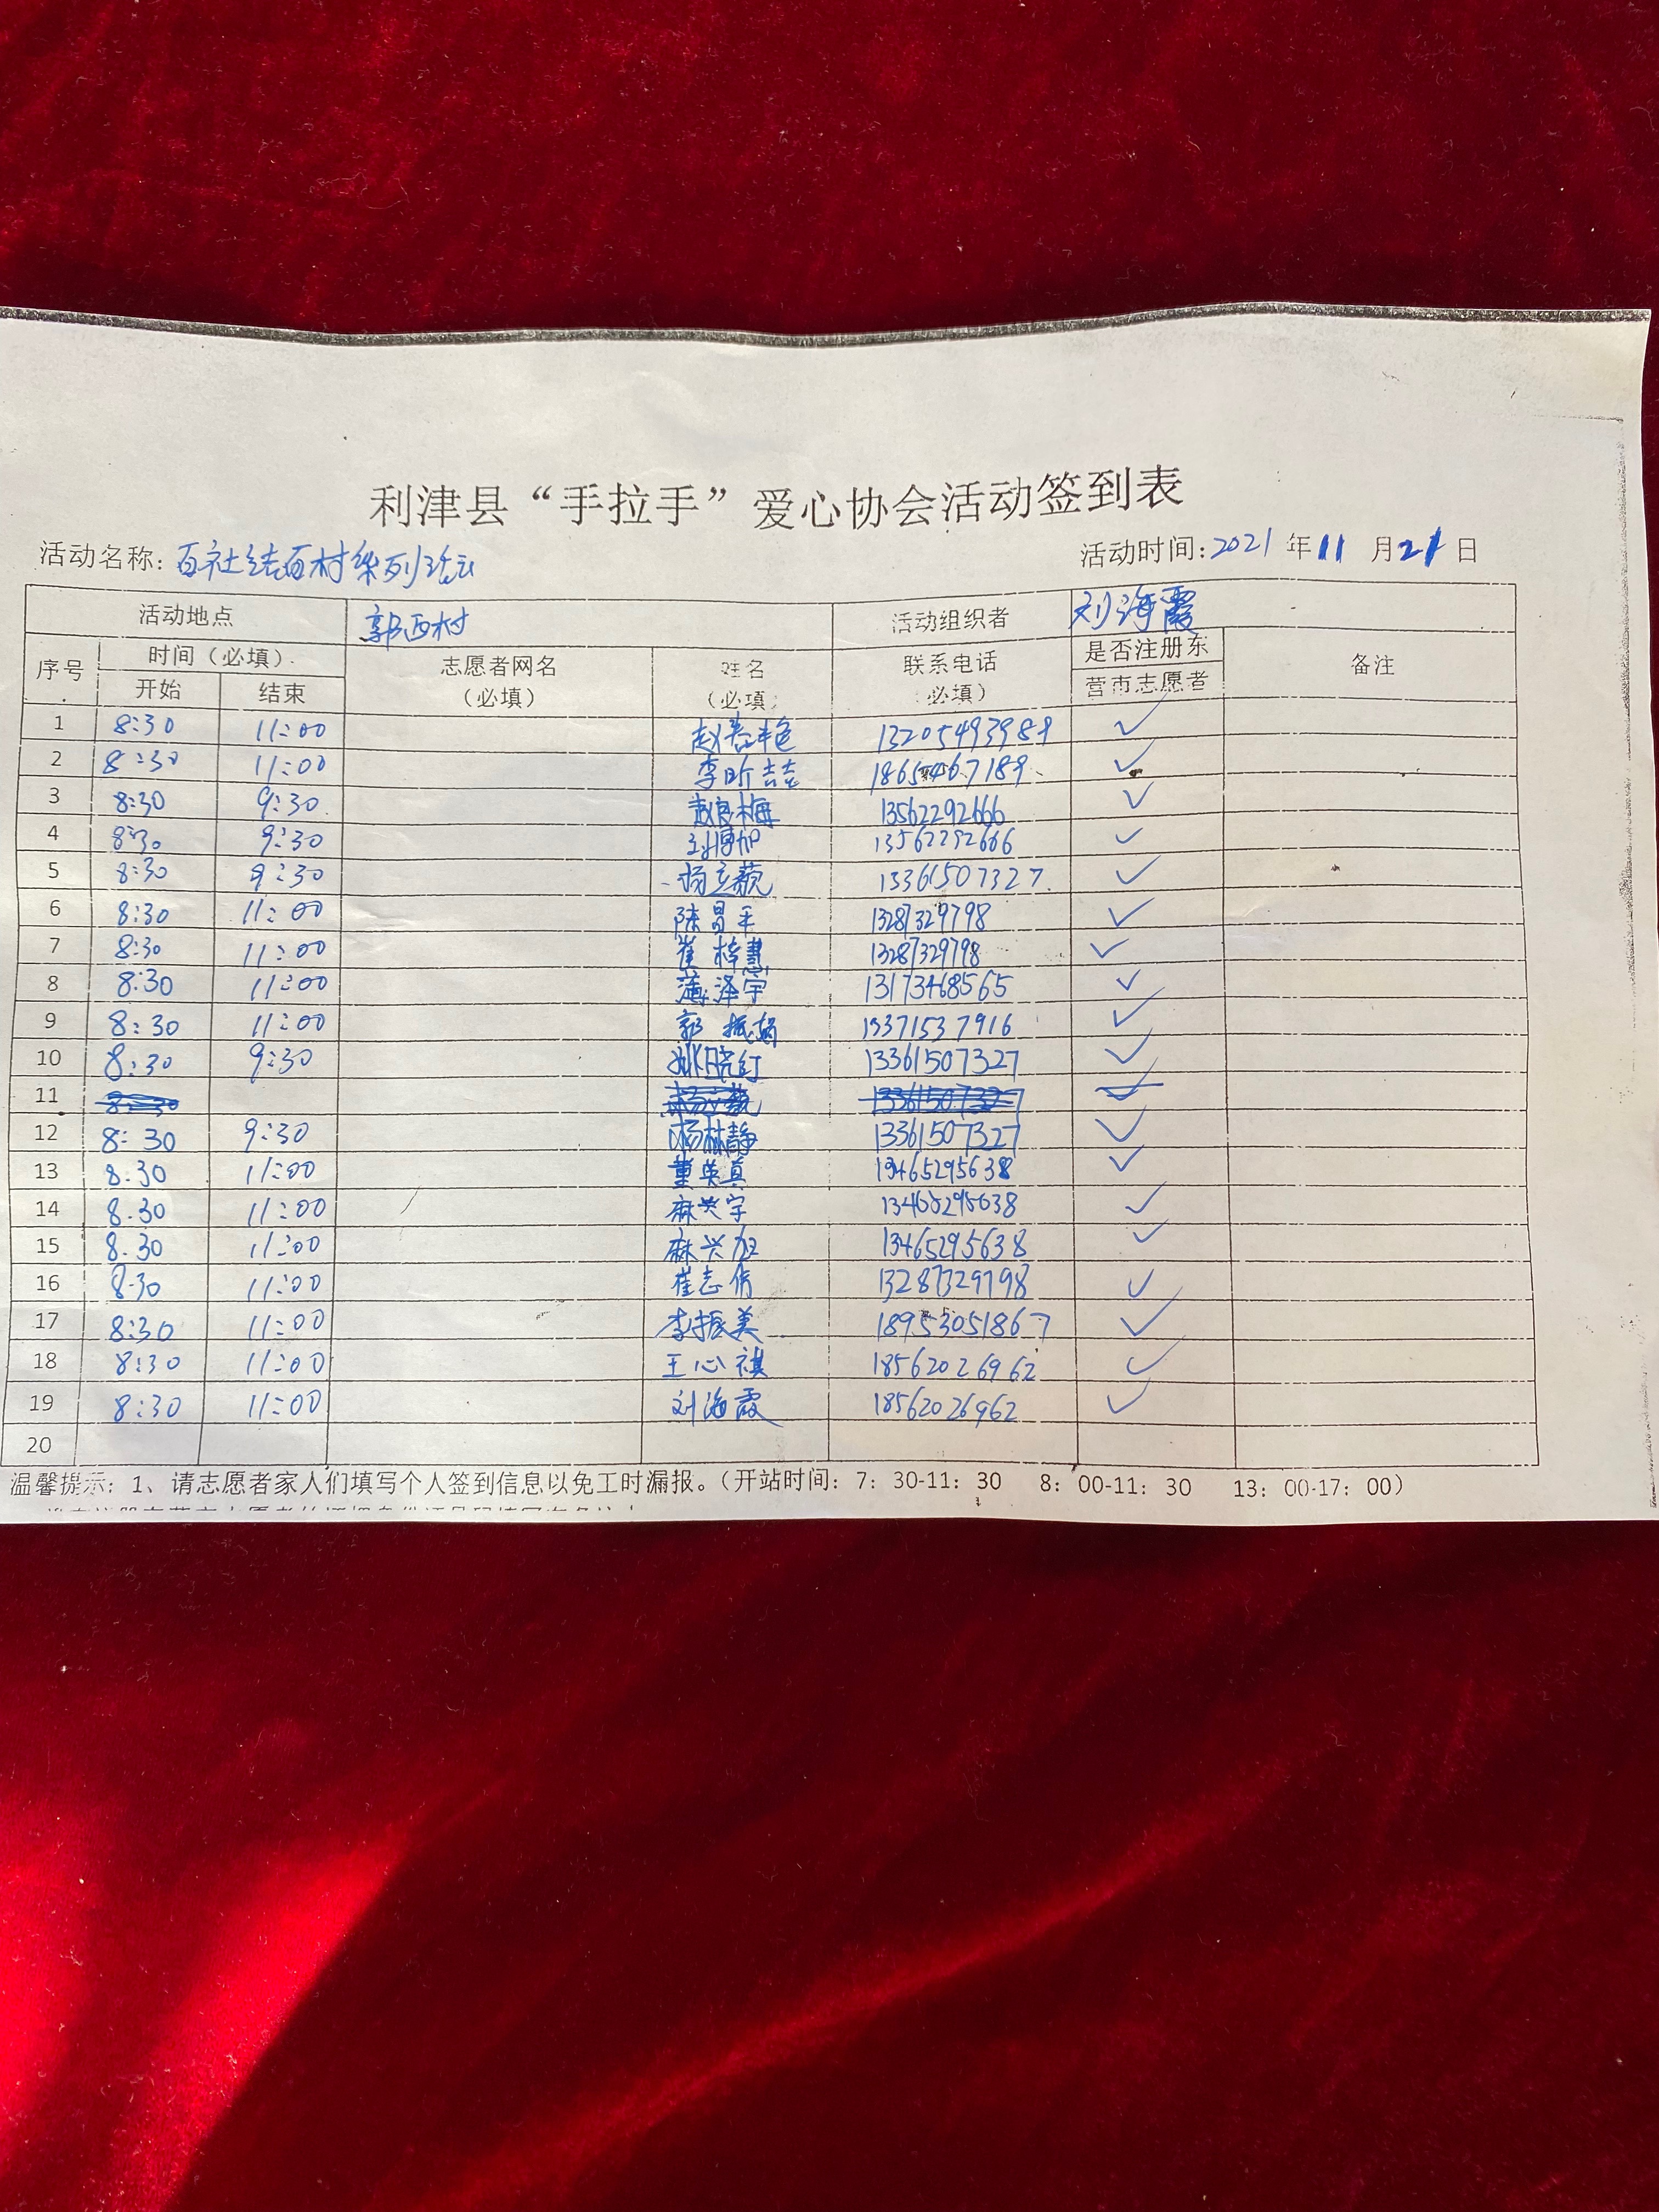 利津县“手拉手”爱心协会活动签到表
活动名称：百社结百村系列活动 活动时间：2021 年 11 月 21 日
活动地点 郭西村 活动组织者 刘海霞
序号 时间（必填） 志愿者网名（必填） 姓名（必填） 联系电话（必填） 是否注册东营市志愿者 备注
开始 结束
1 8:30 11:00 赵春艳 13205493989 ✓
2 8:30 11:00 李昕喆 1865467189 ✓
3 8:30 9:30 赵良梅 13562292666 ✓
4 8:30 9:30 刘博加 13562292666 ✓
5 8:30 9:30 杨立薇 13361507327 ✓
6 8:30 11:00 陈昌平 13287329798 ✓
7 8:30 11:00 崔梓慧 13287329798 ✓
8 8:30 11:00 蒲泽宇 13173468565 ✓
9 8:30 11:00 郭振娟 15371537916 ✓
10 8:30 9:30 姚晓红 13361507327 ✓
11 8:30 13361507327 ✓
12 8:30 9:30 杨林静 13361507327 ✓
13 8.30 11:00 董英真 13465295638 ✓
14 8.30 11:00 麻兴宇 13465295638 ✓
15 8.30 11:00 麻兴 13465295638 ✓
16 8.30 11:00 崔志倩 13287329798 ✓
17 8:30 11:00 李振美 18953051867 ✓
18 8:30 11:00 王心祺 18562026962 ✓
19 8:30 11:00 刘海霞 18562026962 ✓
20
温馨提示：1、请志愿者家人们填写个人签到信息以免工时漏报。（开站时间：7：30-11：30 8：00-11：30 13：00-17：00）